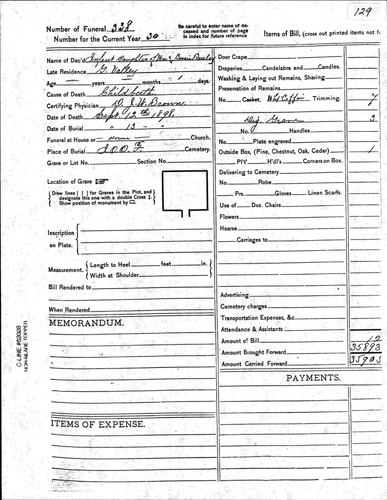 129
Number of Funeral 328
Number for the Current Year 30
Be careful to enter name of deceased and number of page in index for future reference
Items of Bill, (cross out printed items not
Name of Dec'd Infant Daughter of Wm &
Late Residence G. Valley
Age years months 1 days.
Cause of Death Childbirth
Certifying Physician Brown
Date of Death Sept 12th 1898
Date of Burial " 13 "
Funeral at House or Home Church.
Place of Burial I.O.O.F. Cemetery.
Grave or Lot No. Section No.
Location of Grave
Draw lines for Graves in the Plot, and
designate this one with a double Cross
Show position of monument by
Inscription
on Plate.
Measurement.
Length to Heel feet in.
Width at Shoulder
Bill Rendered to
When Rendered
MEMORANDUM.
ITEMS OF EXPENSE.
Door Crape
Draperies Candelabra and Candles.
Washing & Laying out Remains, Shaving,
Preservation of Remains
No. Casket, Wht Coffin Trimming. 7
Dig Grave 3
No. Handles
Plate engraved
Outside Box, (Pine, Chestnut, Oak, Cedar) 1
Pl't H'dl's Corners on Box.
Delivering to Cemetery
No. Robe
Prs. Gloves Linen Scarfs.
Use of Doz. Chairs
Flowers
Hearse
Carriages to
Advertising
Cemetery charges
Transportation Expenses, &c.
Attendance & Assistants
Amount of Bill 12
Amount Brought Forward 35893
Amount Carried Forward 35905
PAYMENTS.
C-LINE #62038
NON-GLARE TOPPER